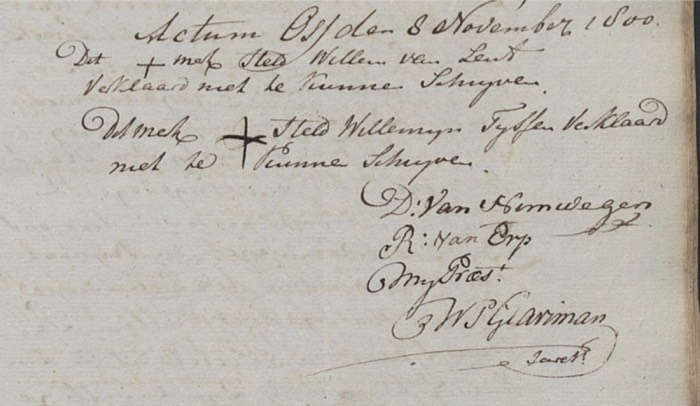 Actum Oss den 8 November 1800.
Dit + merk Steld Willem van Lent
Verklaard niet te kunne Schryven.
Dit merk + Steld Willemyn Tyssen Verklaard
niet te kunne Schryven
D: Van Nimwegen
R: van Erp
My Præs.t
Secret.s